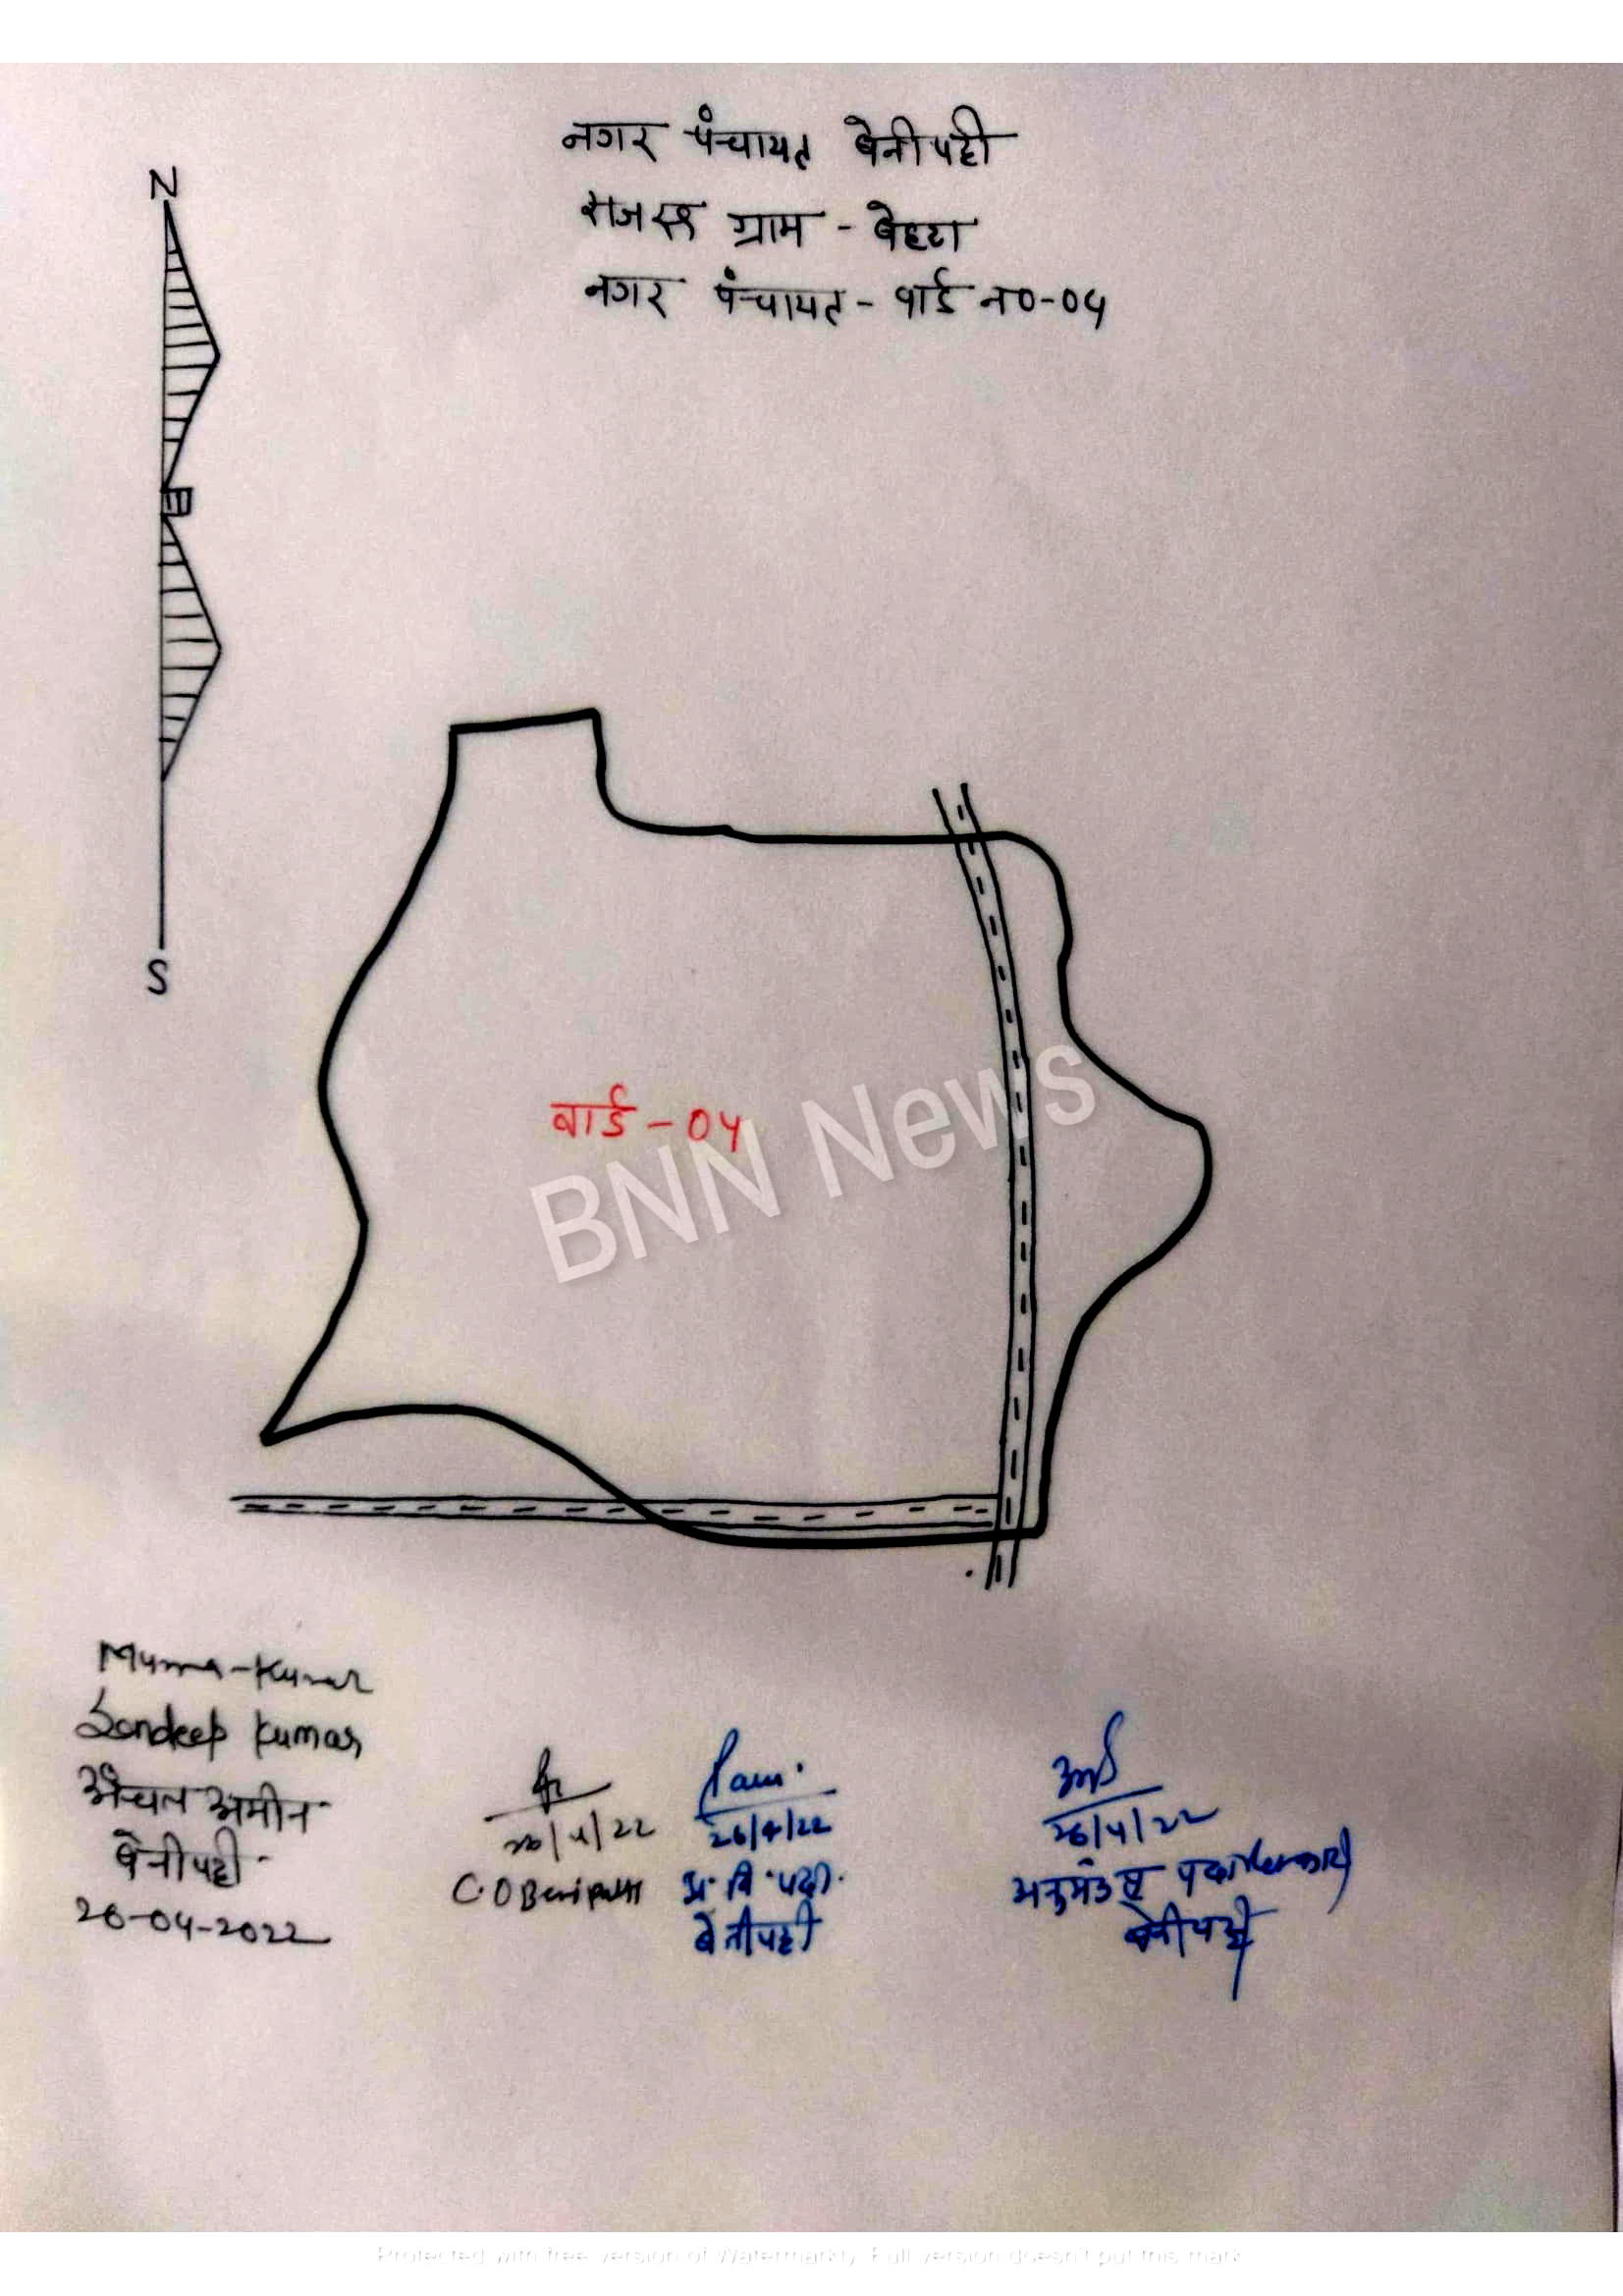 नगर पंचायत बेनीपट्टी
राजस्व ग्राम - बेहटा
नगर पंचायत - वार्ड न०-04
N
S
वार्ड - 04
BNN News
Munna-Kumar
Sandeep Kumar
अंचल अमीन
बेनीपट्टी
26-04-2022
26/4/22
C.O Benipatti
26/4/22
प्र. वि. पदा.
बेनीपट्टी
26/4/22
बेनीपट्टी
Protected with free version of Watermarkly. Full version doesn't put this mark.